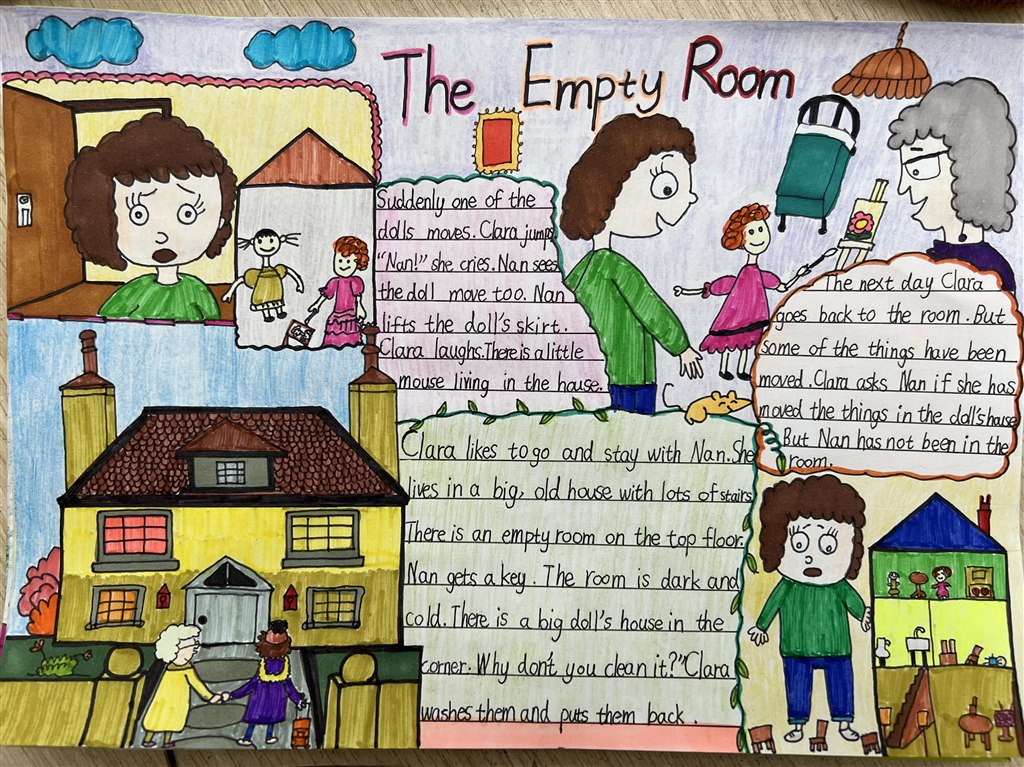 The Empty Room
Suddenly one of the
dolls moves. Clara jumps
"Nan!" she cries. Nan sees
the doll move too. Nan
lifts the doll's skirt.
Clara laughs. There is a little
mouse living in the house.
The next day Clara
goes back to the room. But
some of the things have been
moved. Clara asks Nan if she has
moved the things in the doll's house
But Nan has not been in the
room.
Clara likes to go and stay with Nan. She
lives in a big, old house with lots of stairs
There is an empty room on the top floor.
Nan gets a key. The room is dark and
cold. There is a big doll's house in the
corner. Why don't you clean it?" Clara
washes them and puts them back.